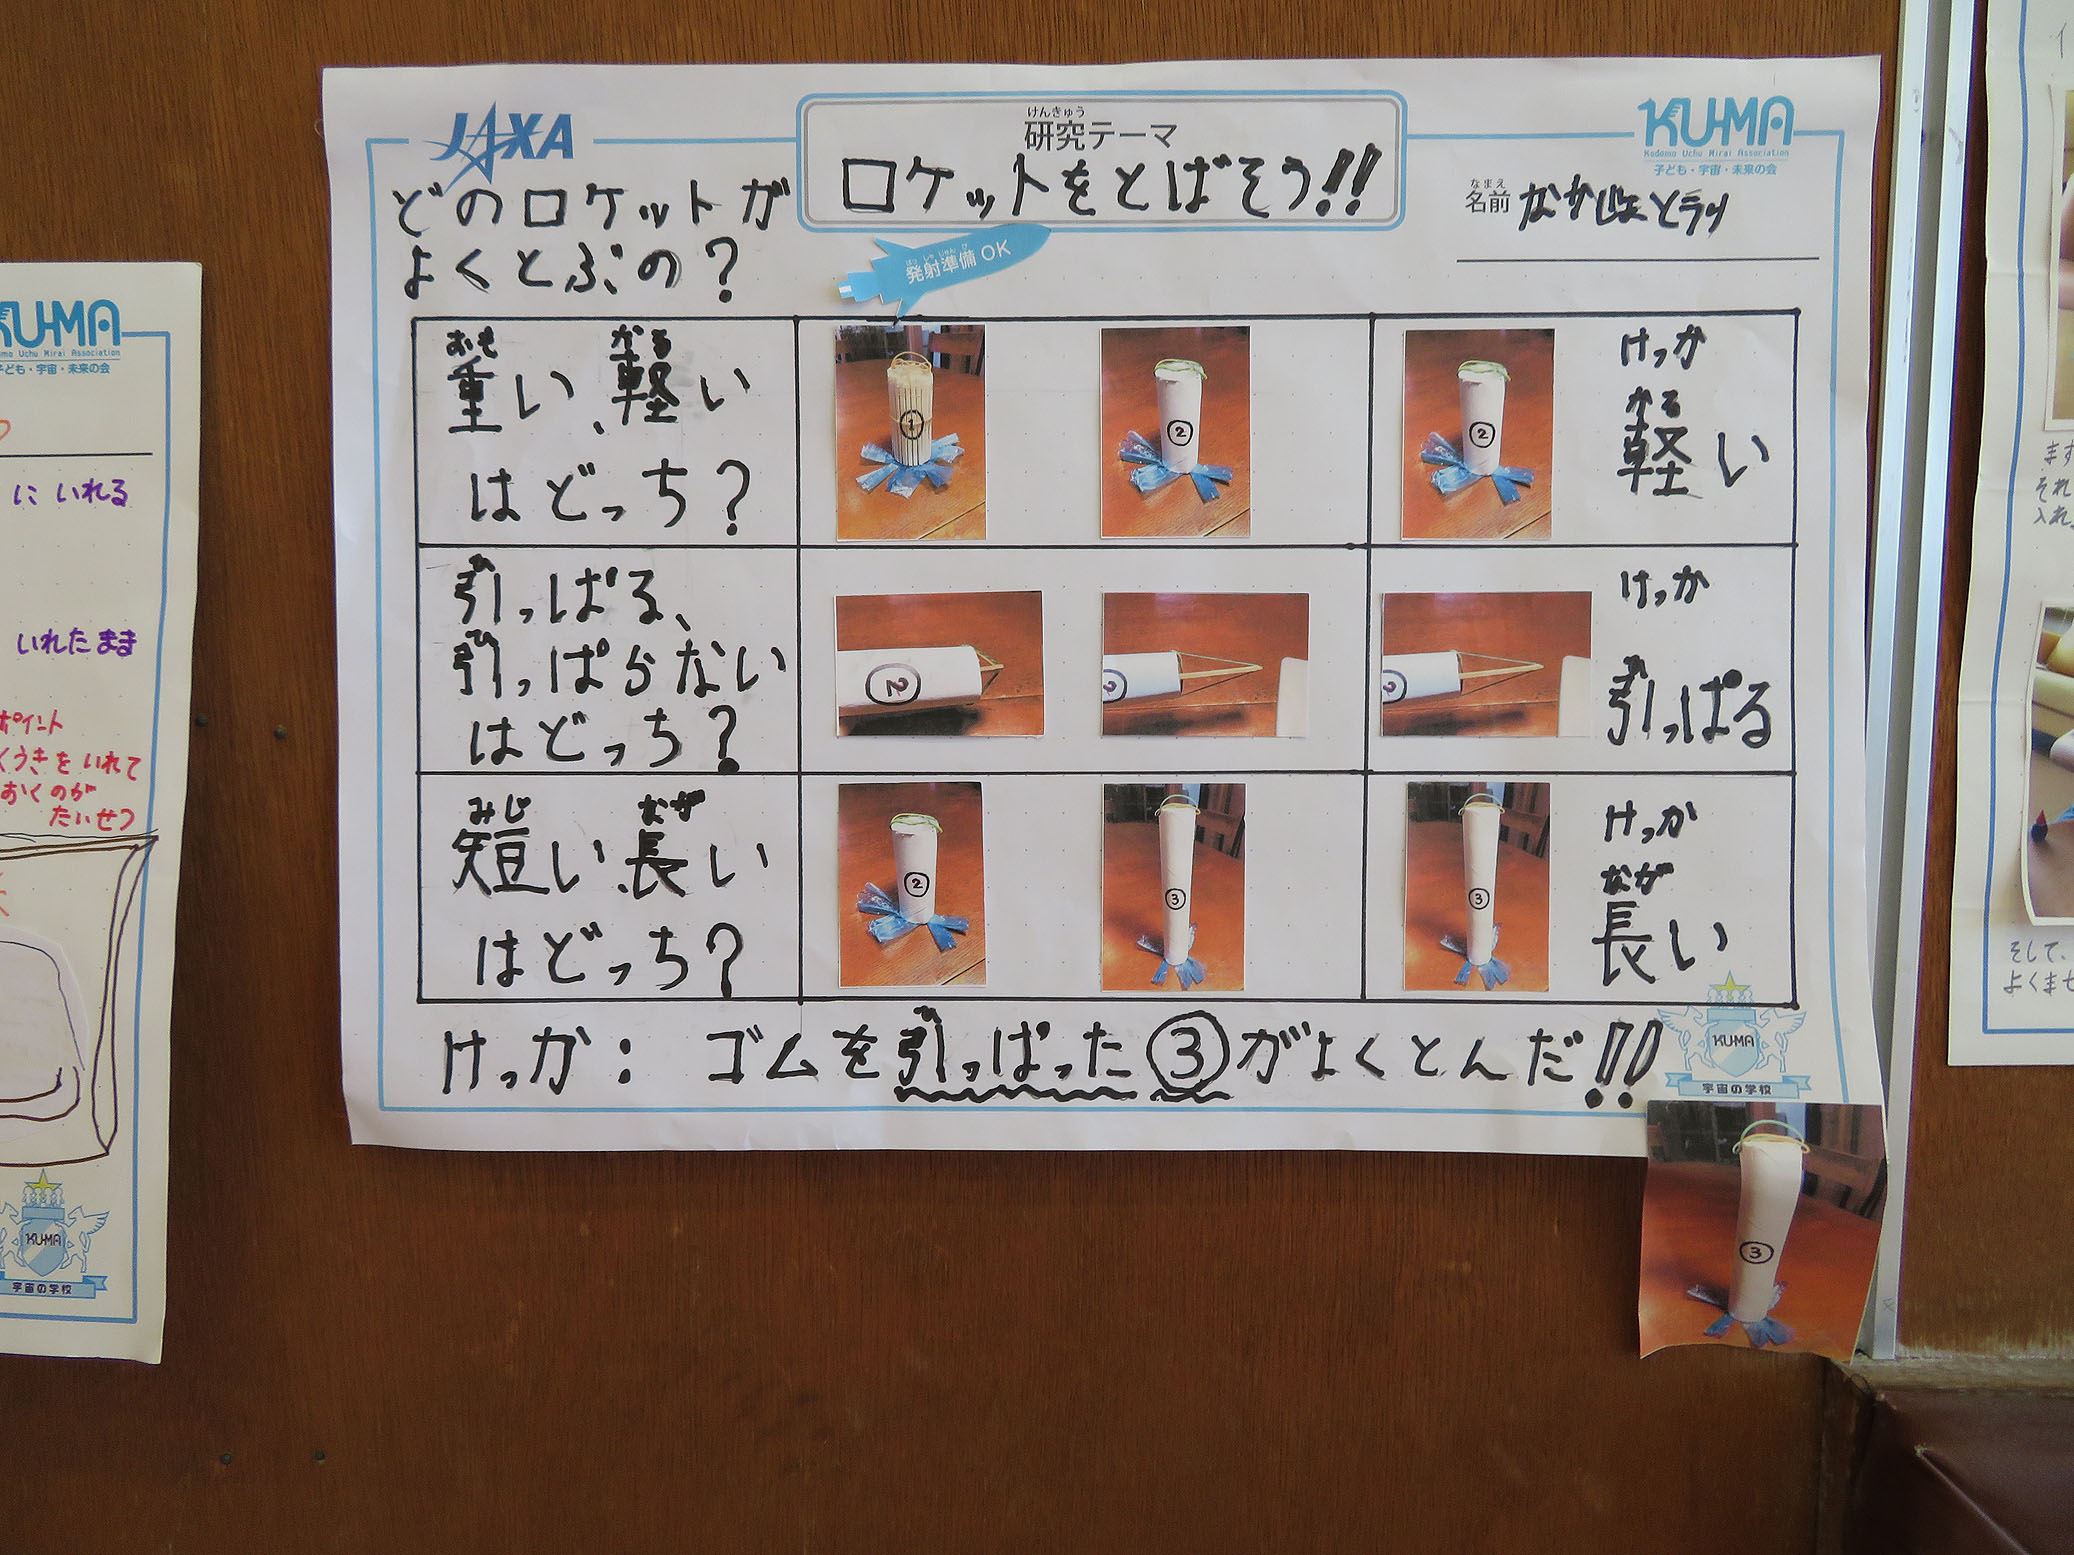 JAXA
けんきゅう
研究テーマ
ロケットをとばそう!!
KU-MA
Kodomo Uchu Mirai Association
子ども・宇宙・未来の会
なまえ
名前
どのロケットが
よくとぶの?
はっしゃじゅんび
発射準備OK
おも かる
重い、軽い
はどっち?
①
②
②
けっか
かる
軽い
ひ
引っぱる、
ひ
引っぱらない
はどっち?
②
②
②
けっか
ひ
引っぱる
みじ なが
短い、長い
はどっち?
②
③
③
けっか
なが
長い
ひ
けっか: ゴムを引っぱった③がよくとんだ!!
KU-MA
宇宙の学校
③
KU-MA
Uchu Mirai Association
子ども・宇宙・未来の会
にいれる
いれたまま
ポイント
くうきをいれて
おくのが
たいせつ
KU-MA
宇宙の学校
ます
それ
入れ
そして、
よくませ